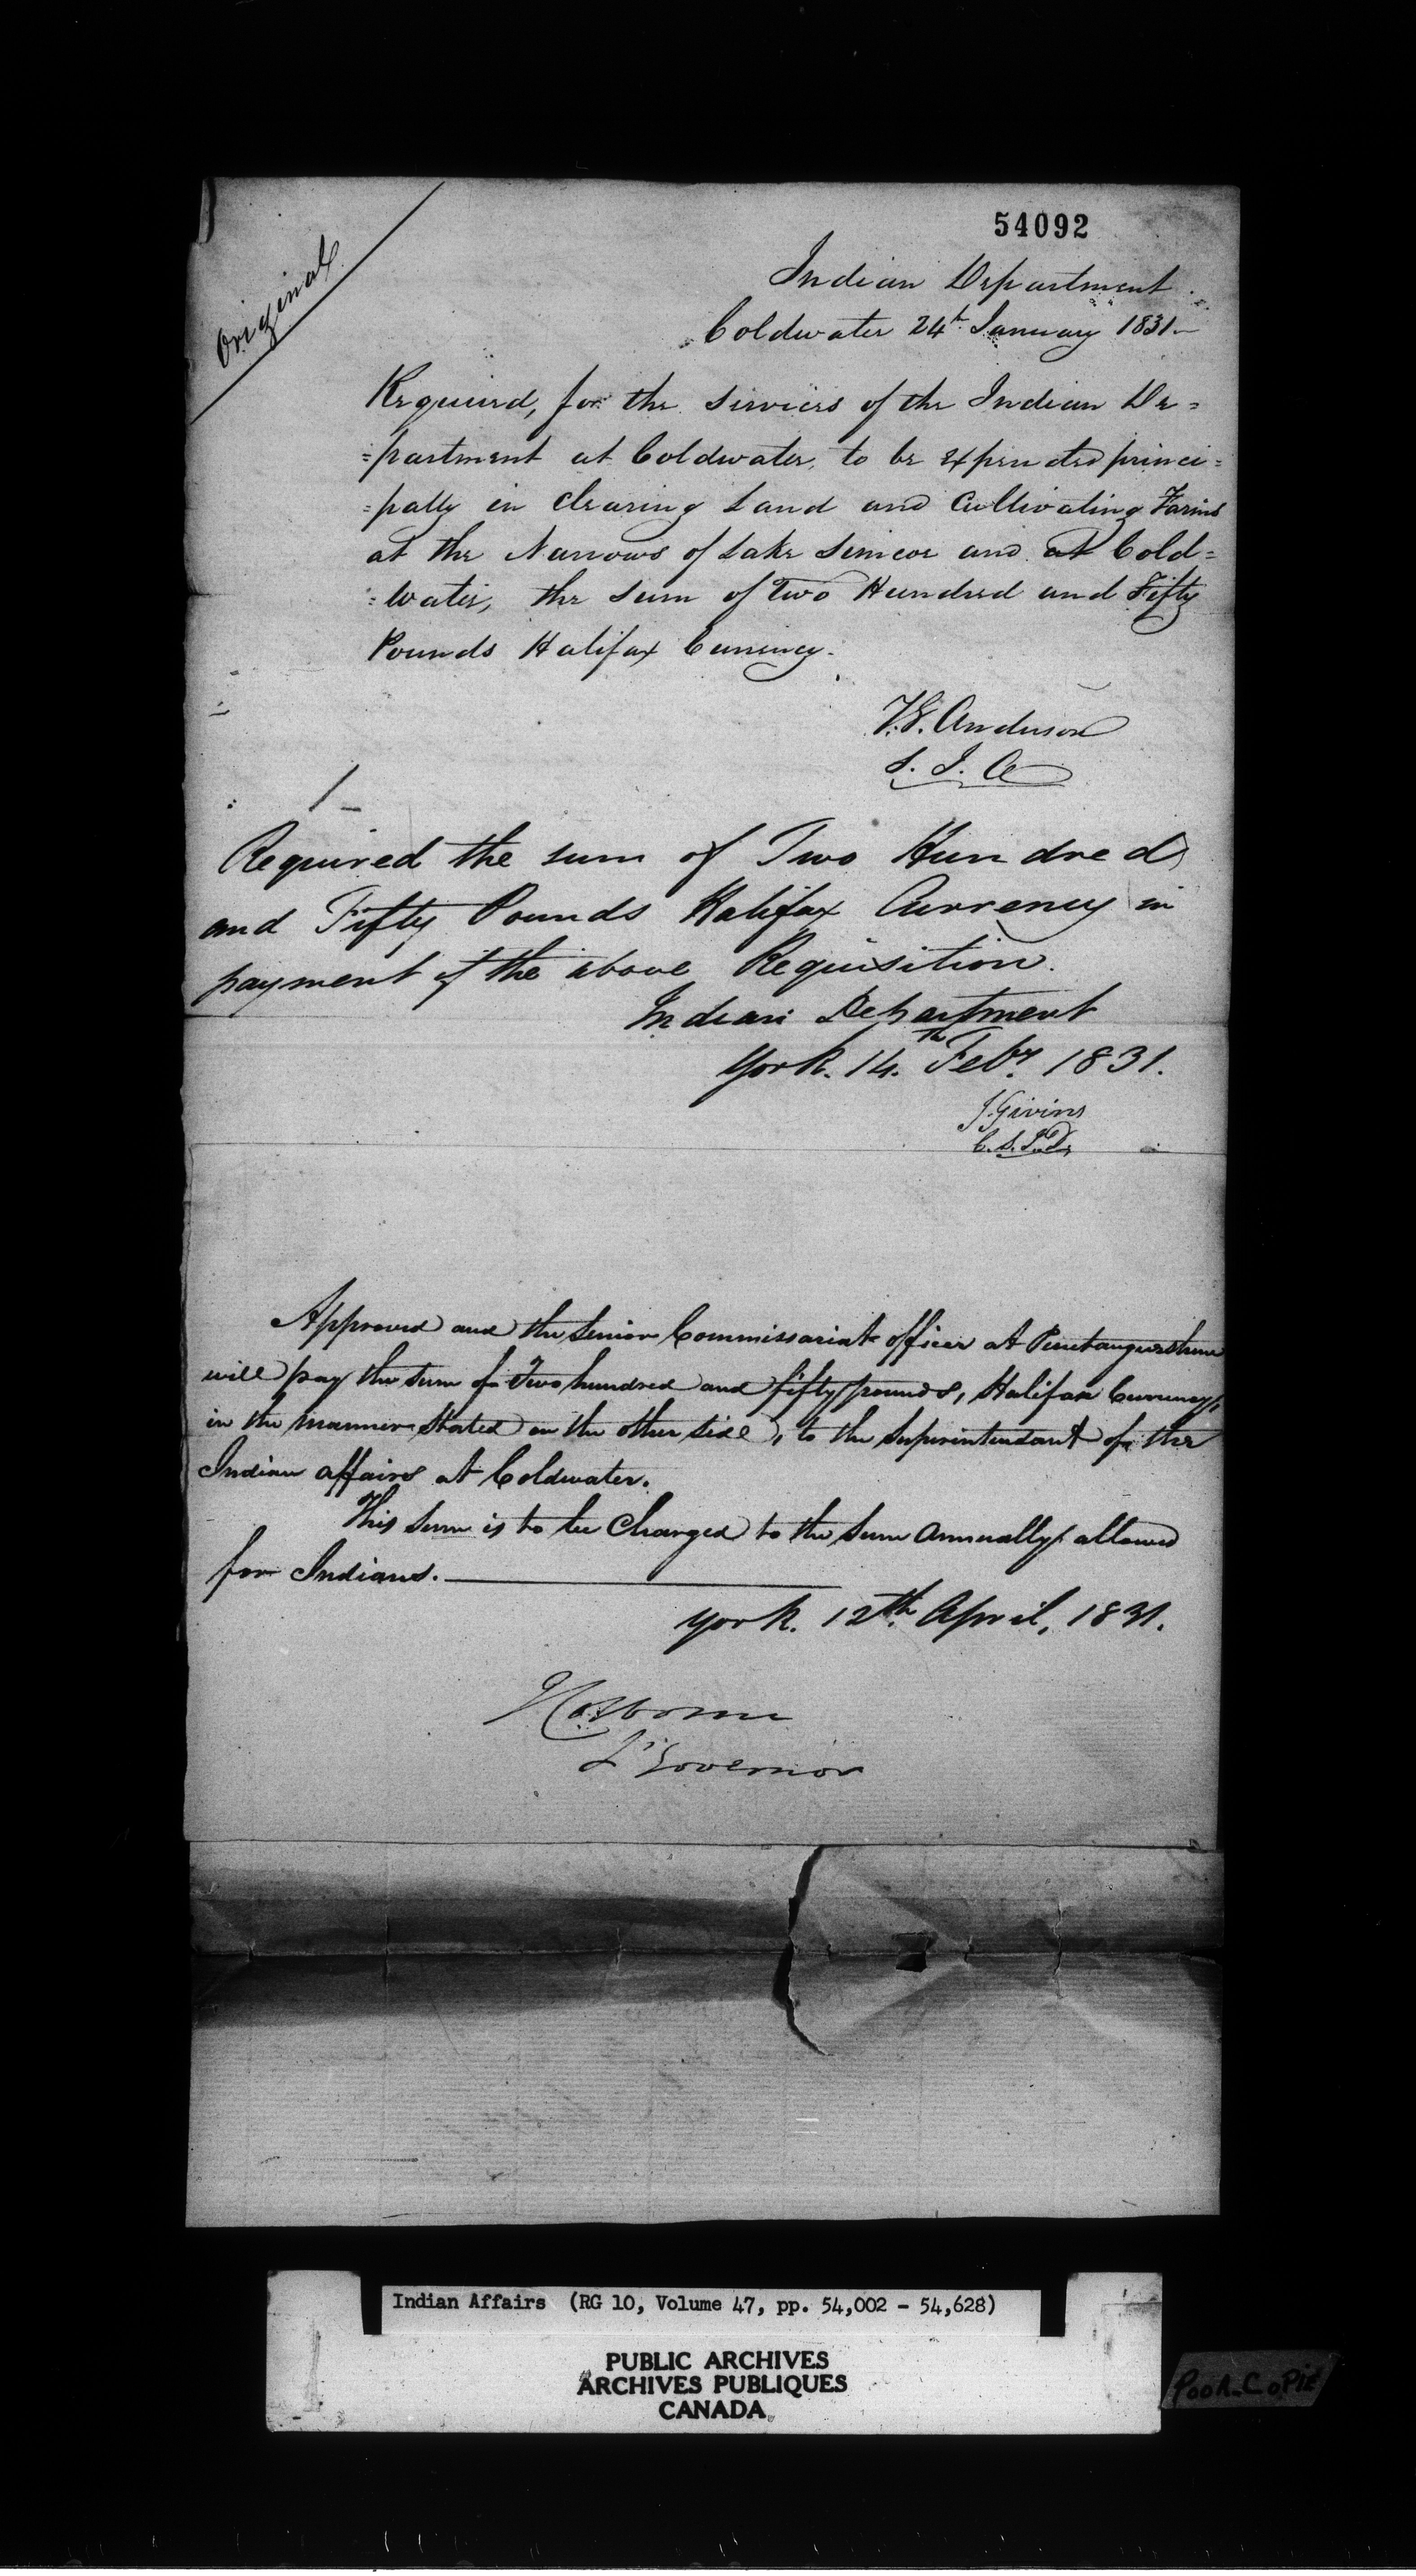 54092
Original
Indian Department
Coldwater 24th January 1831
Required, for the Services of the Indian De=
=partment at Coldwater, to be Expended princi=
=pally in Clearing Land and Cultivating Farms
at the Narrows of Lake Simcoe and at Cold=
=water, the Sum of Two Hundred and Fifty
Pounds Halifax Currency.
T.G. Anderson
S. I. A
1
Required the sum of Two Hundred
and Fifty Pounds Halifax Currency in
payment of the above Requisition.
Indian Department
York. 14.th Feby. 1831.
J. Givins
C.S.I.D.
Approved and the Senior Commissariat officer at Penetanguishene
will pay the sum of Two hundred and fifty pounds, Halifax Currency,
in the manner Stated on the other side, to the Superintendant of the
Indian affairs at Coldwater.
This Sum is to be Charged to the Sum Annually allowed
for Indians.
York. 12th. April, 1831.
J Colborne
Lt Governor
Indian Affairs (RG 10, Volume 47, pp. 54,002 - 54,628)
PUBLIC ARCHIVES
ARCHIVES PUBLIQUES
CANADA
Poor Copie